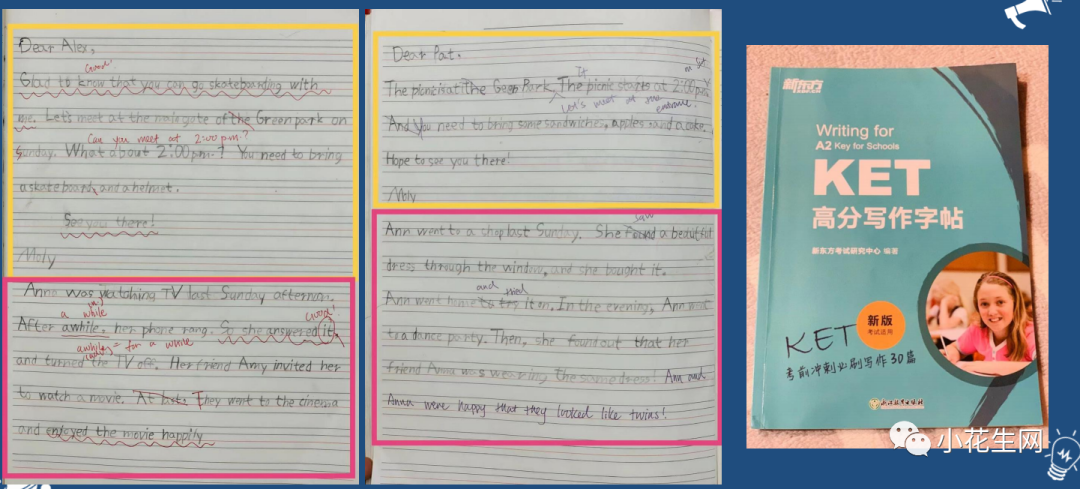 Dear Alex,
Good!
Glad to know that you can go skateboarding with
me. Let's meet at the main gate of the Green park on
Can you meet at 2:00 p.m.?
Sunday. What about 2:00p.m.? You need to bring
a skateboard, and a helmet.
See you there!
Moly
Anna was watching TV last Sunday afternoon.
a while
Good!
After awhile, her phone rang. So she answered it,
awhile = for a while
and turned the TV off. Her friend Amy invited her
to watch a movie. At last, They went to the cinema
and enjoyed the movie happily
Dear Pat,
It
on Sat.
The picnic is at The Green Park, The picnic starts at 2:00 p.m.
Let's meet at the entrance.
And You need to bring some sandwiches, apples and a cake.
Hope to see you there!
Moly
saw
Ann went to a shop last Sunday. She found a beautiful
dress through the window, and she bought it.
and tried
Ann went home to try it on. In the evening, Ann went
to a dance party. Then, she found out that her
friend Anna was wearing the same dress! Ann and
Anna were happy that they looked like twins!
新东方
Writing for
A2 Key for Schools
KET
高分写作字帖
新东方考试研究中心 编著
新版
考试适用
KET
考前冲刺必刷写作30篇
浙江教育出版社
小花生网